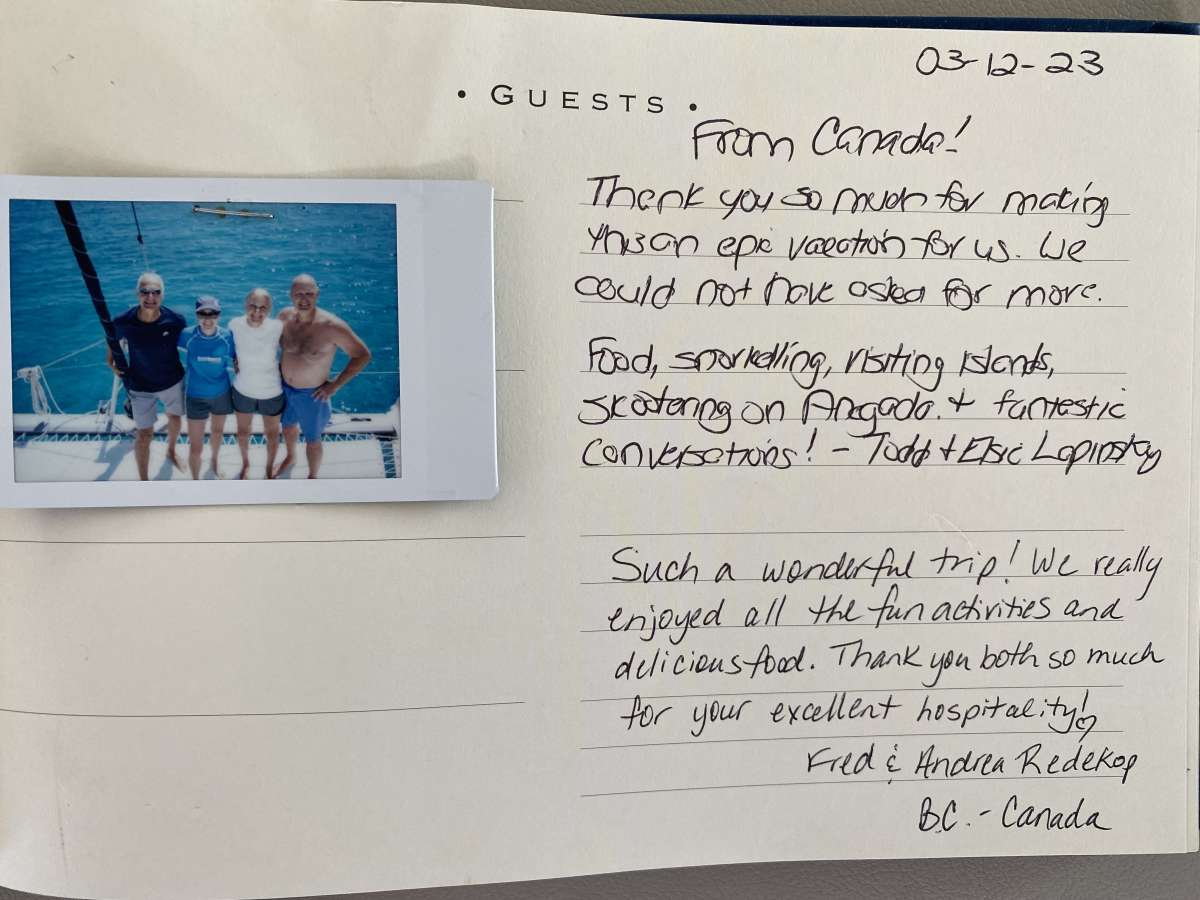 03-12-23
• GUESTS •
From Canada!
Thank you so much for making
this an epic vacation for us. We
could not have asked for more.
Food, snorkelling, visiting islands,
skootering on Anegada. + fantastic
conversations! - Todd + Elsie Lopinsky
Such a wonderful trip! We really
enjoyed all the fun activities and
delicious food. Thank you both so much
for your excellent hospitality!
Fred & Andrea Redekop
B.C. - Canada